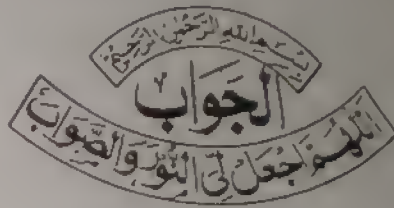 بِسْمِ اللهِ الرَّحْمٰنِ الرَّحِيْمِ
الجواب
اَللّٰهُمَّ اجْعَلْ لِّی النُّوْرَ وَالصَّوَابَ